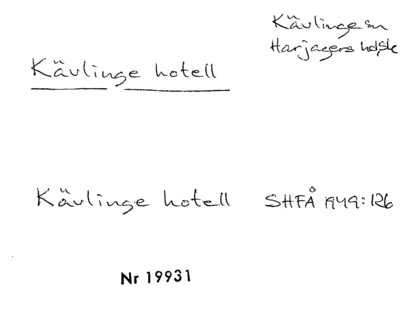 Kävlinge sn
Harjagers hd, Sk
Kävlinge hotell
Kävlinge hotell SHFÅ 1949:126
Nr 19931